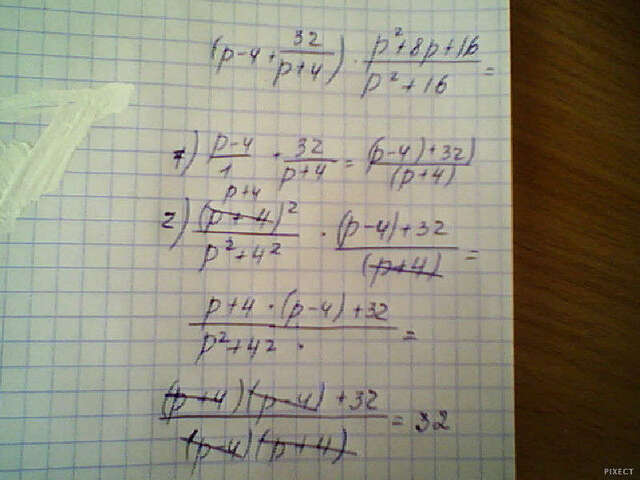 (p-4+32/(p+4)) · (p²+8p+16)/(p²+16) =
1) (p-4)/1 + 32/(p+4) = ((p-4)+32)/(p+4)
p+4
2) (p+4)²/(p²+4²) · ((p-4)+32)/(p+4) =
(p+4·(p-4)+32)/(p²+4²·) =
((p+4)(p-4)+32)/((p-4)(p+4)) = 32
PIXECT